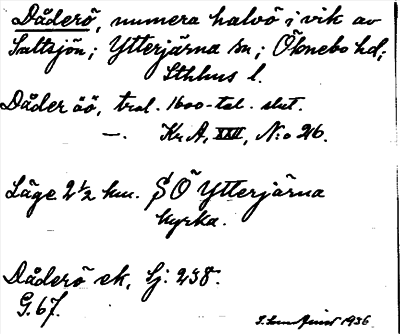 Dåderö, numera halvö i vik av
Saltsjön; Ytterjärna sn; Öknebo hd;
Sthlms l.
Dåder öö, trol. 1600-tal. slut.
—. Kr.A, XXII, N:o 26.
Läge 2 1/2 km. SÖ Ytterjärna
kyrka.
Dåderö ek, Sj. 258.
G. 67.
1936